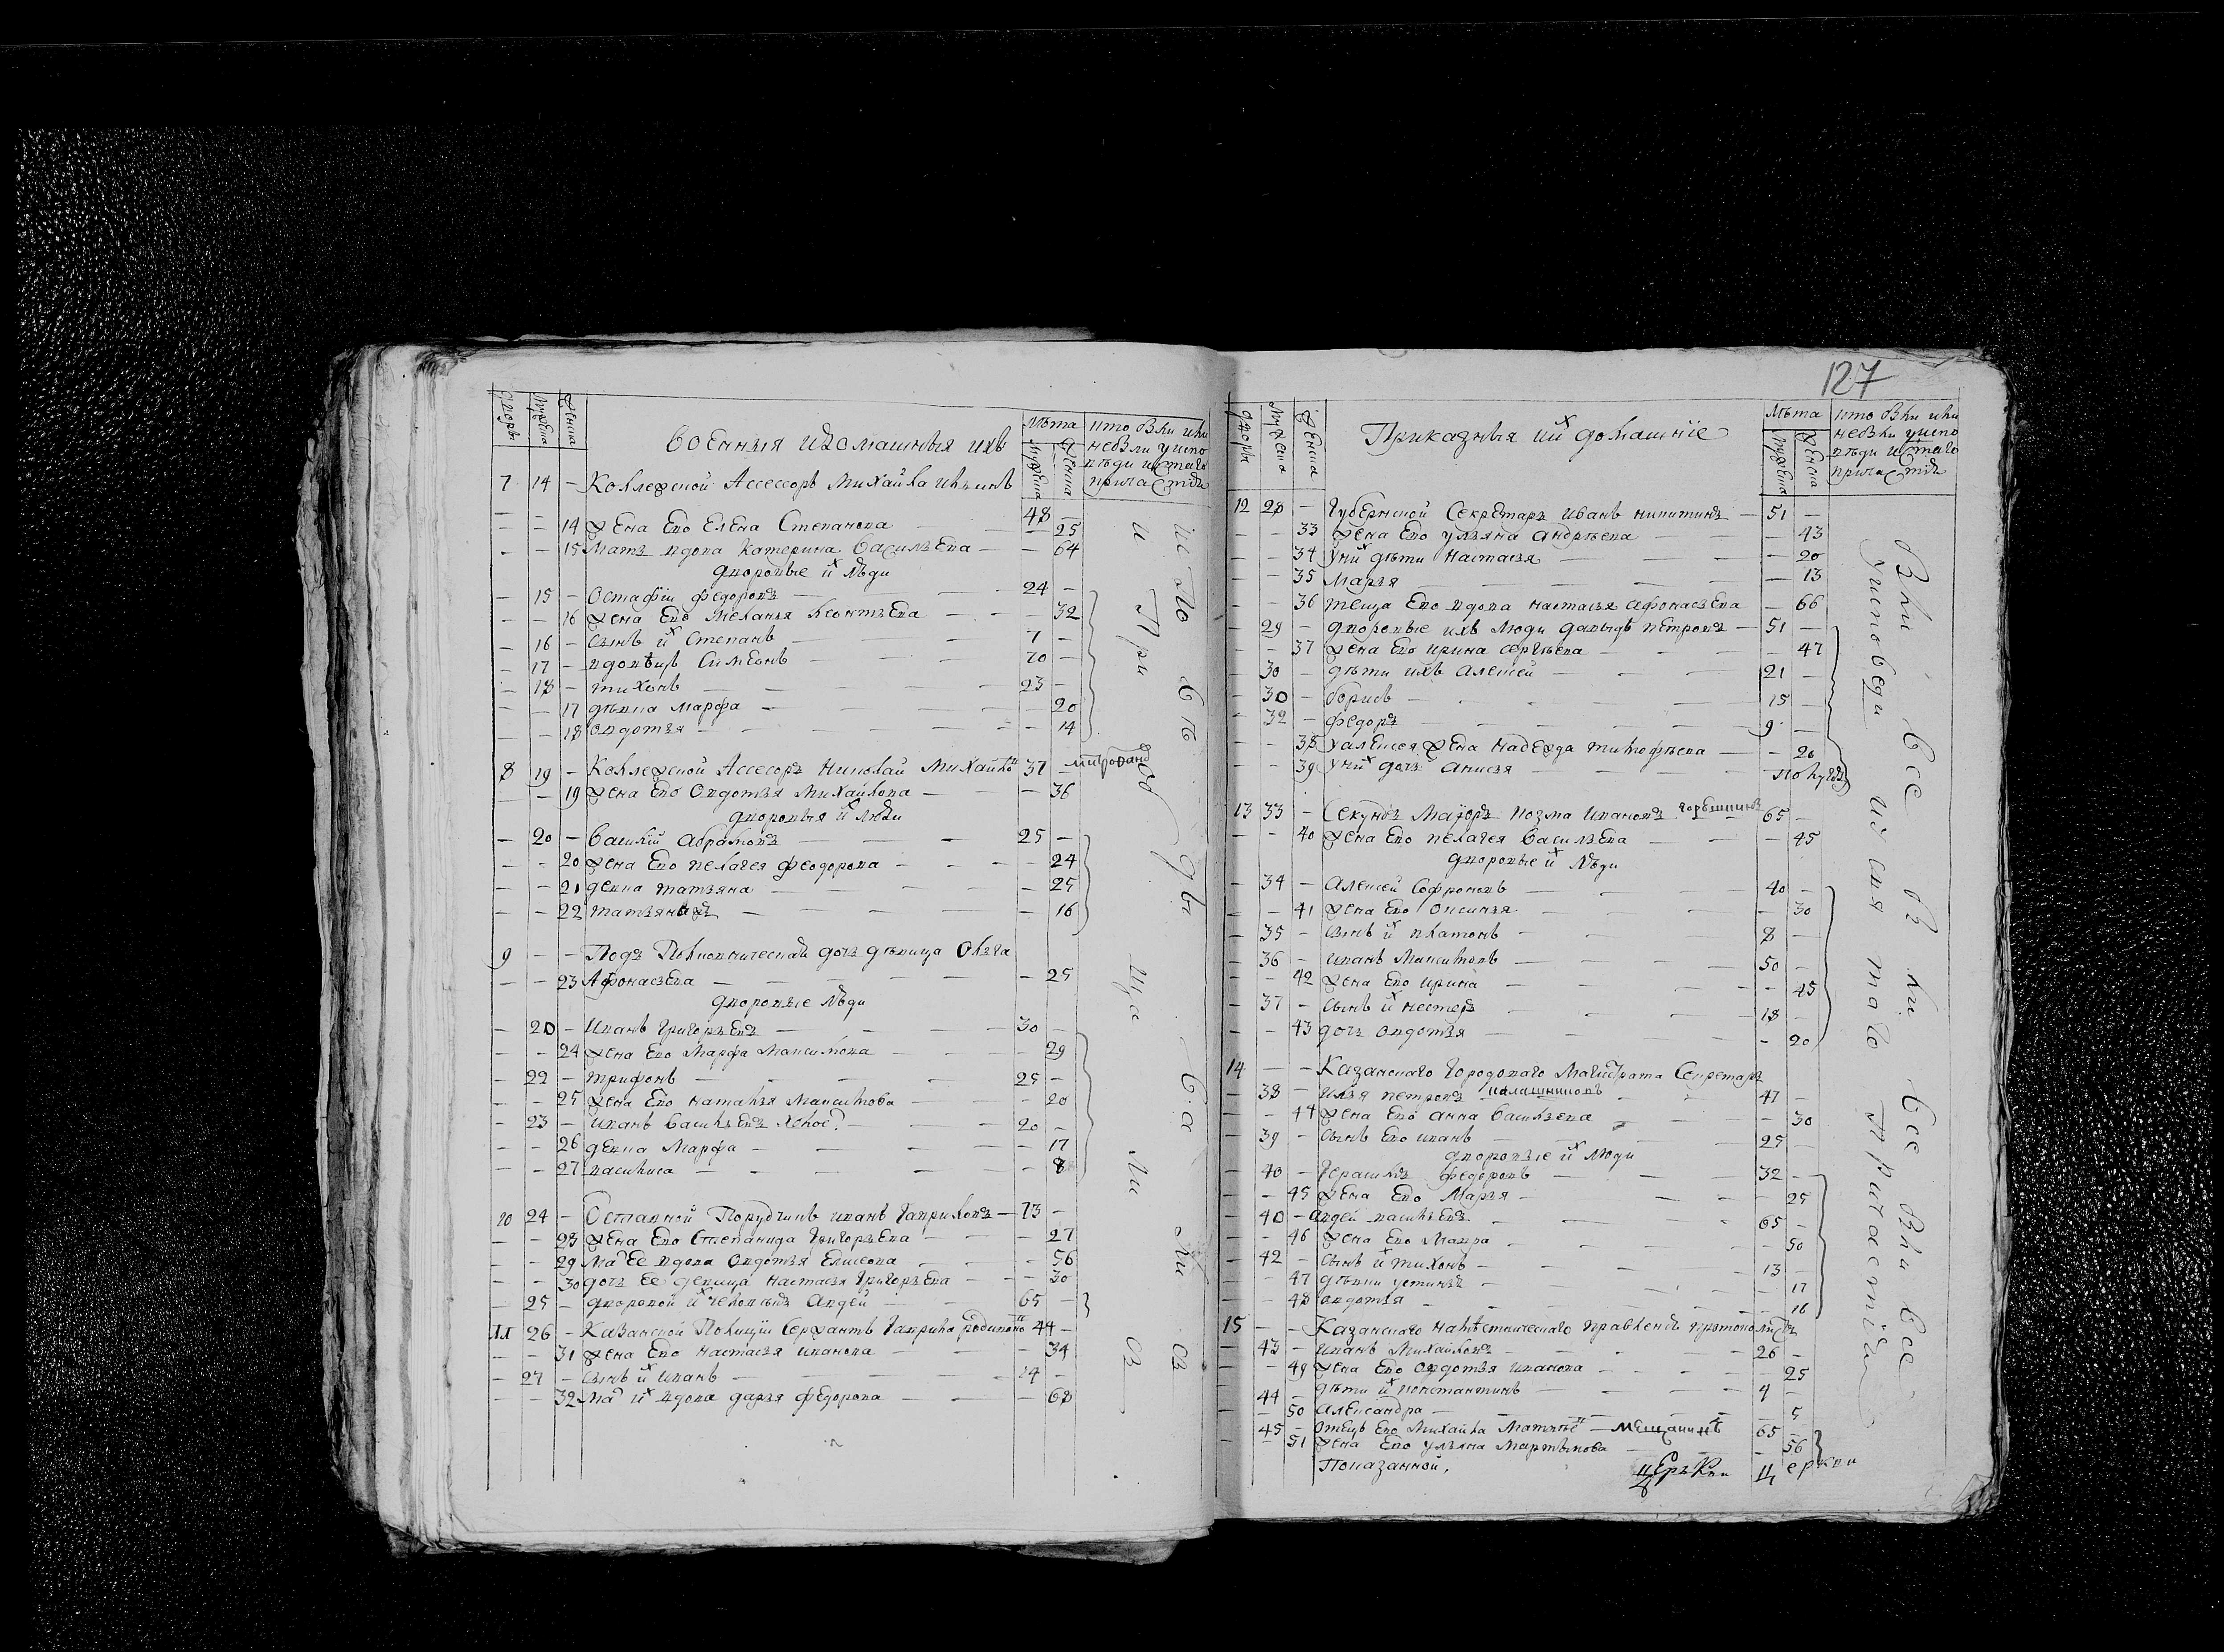 дворы мужеска женска Военныя и домашныя ихъ лѣта мужеска женска кто были или
небыли у испо
вѣди и с͠таго
причастія
7 14 - Коллежской Ассессоръ Михайла Ильинъ 48 -
- - 14 жена Ево Елена Степанова - 25
- - 15 мать вдова Катерина Васильева - 64
дворовые их люди
- 15 - Остафiи Федоровъ 24 -
- - 16 жена Ево Меланья Леонтьева - 32
- 16 - сынъ их Степанъ 7 -
- 17 - вдовѣцъ Симеонъ 70 -
- 18 - тихонъ 23 -
- - 17 дѣвка Марфа - 20
- - 18 овдотья - 14
8 19 - Коллежской Ассесоръ Николай Михайловъ митрофановъ 37 -
- - 19 жена Ево Овдотья Михайлова - 36
дворовыя их люди
- 20 - Василiй Абрамовъ 25 -
- - 20 жена Ево пелагея феодорова - 24
- - 21 девка татьяна - 25
- - 22 татьяна - 16
9 - - Подъ Полковническай дочь дѣвица Ольга
- - 23 Афонасьева - 25
дворовые люди
- 21 - Иванъ Григорьевъ 30 -
- - 24 жена Ево Марфа Максимова - 29
- 22 - трифонъ 25 -
- - 25 жена Ево наталья Максимова - 20
- 23 - Иванъ Васильевъ холос: 20 -
- - 26 девка Марфа - 17
- - 27 василиса - 8
10 24 - Отставной Порутчикъ иванъ Гавриловъ 73 -
- - 28 жена Ево Степанида Григорьева - 27
- - 29 ма͠ ее вдова Овдотья Елисеева - 56
- - 30 дочь ее девица настасья Григорьева - 30
- 25 - дворовой их человѣкъ Авдей 65 -
11 26 - Казанской Полицiи Сержантъ Гаврила родионовъ 44 -
- - 31 жена Ево настасья иванова - 34
- 27 - сынъ их иванъ 14 -
- - 32 ма͠ их вдова дарья федорова - 68
исповѣдывались
и при общались
127
дворы мужеска женска Приказныя их домашнiе лѣта мужеска женска кто были или
небыли у испо
вѣди и с͠таго
причастiя
12 28 - Губернской Секретарь Иванъ никитинъ 51 -
- - 33 жена Ево ульяна андрѣева - 43
- - 34 у них дѣти настасья - 20
- - 35 Марья - 13
- - 36 теща Ево вдова настасья афонасьева - 66
- 29 - дворовые ихъ люди давыдъ петровъ 51 -
- - 37 жена Ево ирина сергѣева - 47
- 30 - дѣти ихъ алексей 21 -
- 31 - борисъ 15 -
- 32 - федоръ 9 -
- - 38 у алексея жена надежда тимофѣева - 20
- - 39 у них дочь анисья - полугода
13 33 - Секундъ Маiоръ козма ивановъ 65 -
- - 40 жена Ево пелагея Васильева - 45
дворовые их люди
- 34 - алексей Софроновъ 40 -
- - 41 жена Ево Оксинья - 30
- 35 - сынъ их платонъ 8 -
- 36 - иванъ Максимовъ 50 -
- - 42 жена Ево ирина - 45
- 37 - сынъ их нестеръ 18 -
- - 43 дочь овдотья - 20
14 - - Казанскаго Городоваго Магистрата Секретарь
- 38 - илья петровъ калашниковъ 47 -
- - 44 жена Ево анна Васильева - 30
- 39 - сынъ Ево иванъ 25 -
дворовые их люди
- 40 - Герасимъ федоровъ 32 -
- - 45 жена Ево Марья - 25
- 41 - авдей васильевъ 65 -
- - 46 жена Ево Мавра - 50
- 42 - сынъ их тихонъ 13 -
- - 47 дѣвки устинья - 17
- - 48 овдотья - 16
15 - - Казанскаго намѣстническаго правленiя протоколистъ
- 43 - иванъ Михайловъ 26 -
- - 49 жена Ево Овдотья иванова - 25
- 44 - дѣти их константинъ 4 -
- - 50 александра - 5
- 45 - Отецъ Ево Михайла Матвѣевъ мещанинъ 65 -
- - 51 жена Ево ульяна Мартынова - 56
Показанной церкви церкви
Были Все Были Все Были Все
у исповеди и с͠вятаго Причастiя